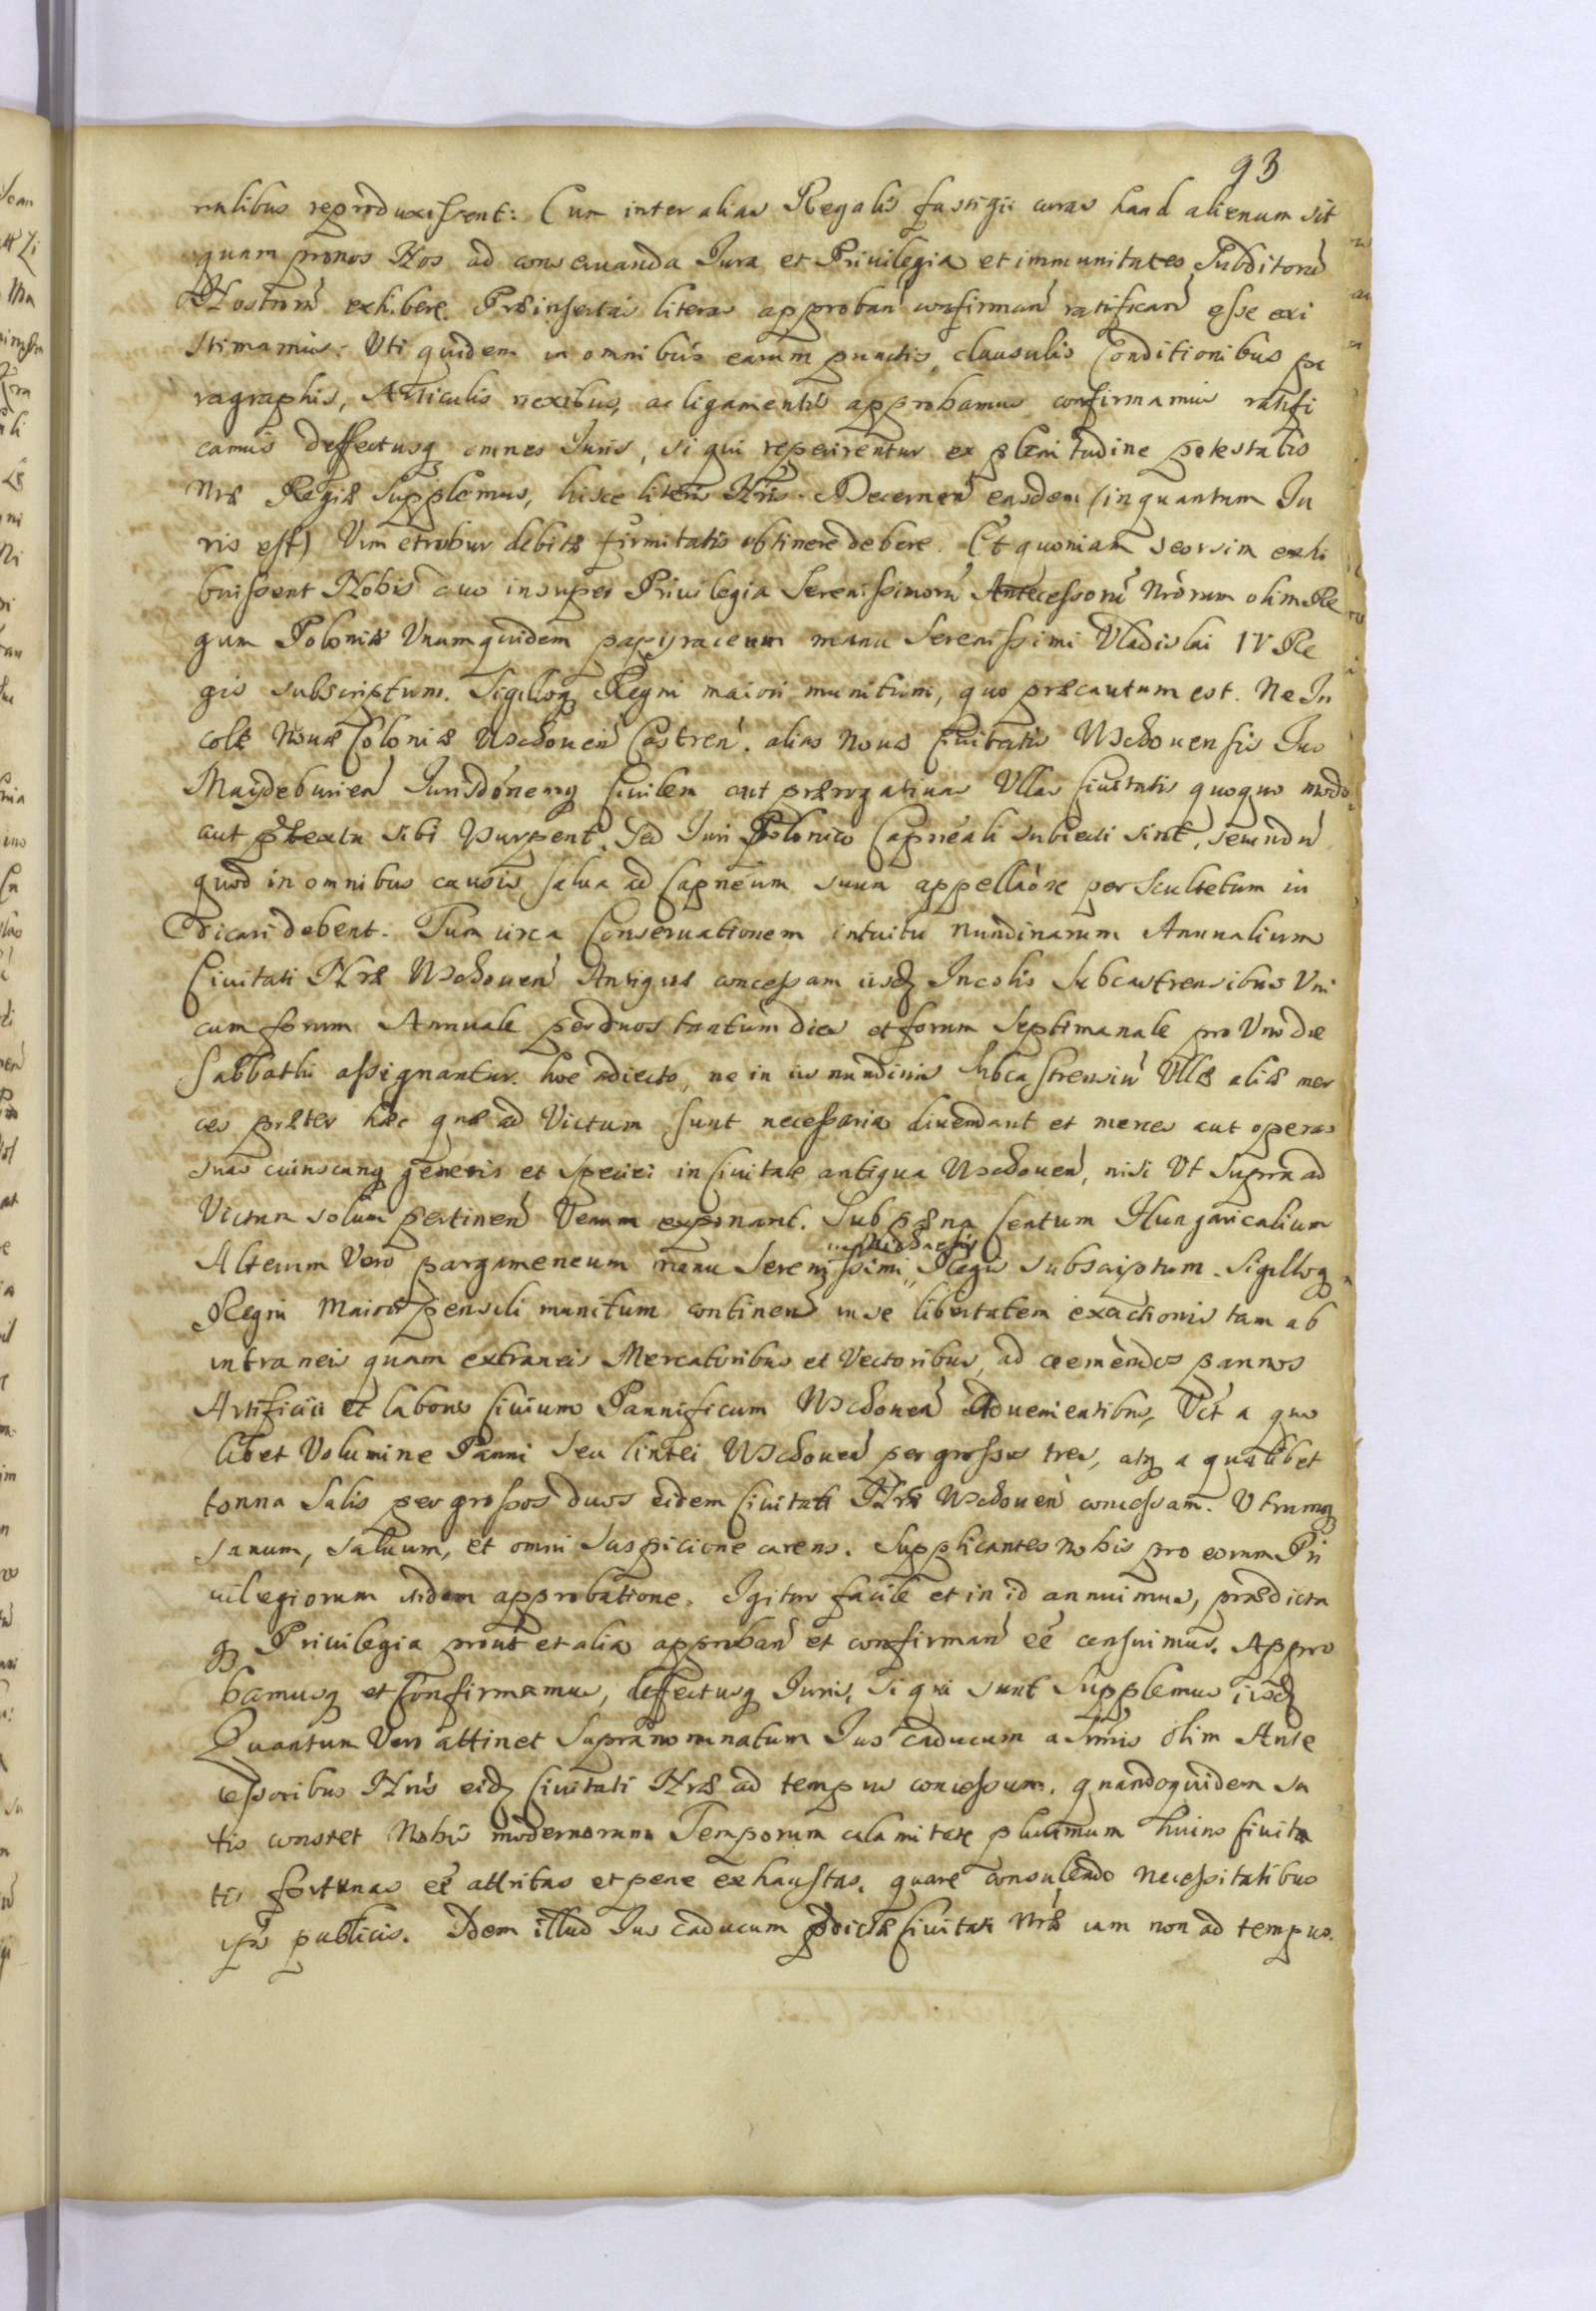 93
nalibus reproduxissent: Cum inter alias Regalis fastigii curas haud alienum sit
quam pronos Nos ad conseruanda Jura et Priuilegia et immunitates Subditorũ
Nostrorũ exhibere. Præinsertas literas approban̄ confirman̄ ratifican̄ esse exi
stimamus. Vti quidem in omnibus earum punctis, clausulis Conditionibus pa
ragraphis, Articulis nexibus, ac ligamentis approbamus confirmamus ratifi
camus deffectusq omnes Juris, si qui reperirentur ex plenitudine potestatis
Nræ Regiæ Supplemus, hisce literis Nris. Decernen̄ easdem (in quantum Ju
ris est) Vim et robur debitæ firmitatis obtinere debere. Et quoniam seorsim exhi
buissent Nobis duo insuper Priuilegia Serenissimorũ Antecessorũ Nrorum olim Re
gum Poloniæ Vnum quidem papyraceum manu Serenissimi Vladislai IV Re
gis subscriptum. Sigilloq Regni maiori munitum, quo præcautum est. Ne In
colæ Nouæ Coloniæ Wschouen̄ Castren̄. alias nouæ Ciuitatis Wschouensis Jus
Maydeburien̄ Jurisdōnemq Ciuilem aut prærogatiuas Vllas Ciuitatis quoquo modo
aut prætextu sibi Vsurpent. Sed Juri Polonico Capnēali subiecti sint, secundũ
quod in omnibus causis salua ad Capnēum suum appellāōe per Scultetum iu
dicari debent. Tum circa Conseruationem intuitu nundinarum Annualium
Ciuitati Nræ Wschouen̄ Antiquæ concessam iisdẽ Incolis Subcastrensibus Vni
cum forum Annuale per duos tantum dies et forum Septimanale pro Vno die
Sabbathi assignantur. hoc adiecto, ne in iis nundinis Subcastrensiũ Vllæ aliæ mer
ces præter hæc quæ ad Victum sunt necessaria diuendant et merces aut operas
suas cuiuscunq generis et speciei in Ciuitate antiqua Wschouen̄, nisi Vt supra ad
Victum solum pertinen̄ Venum exponant. Sub pæna Centum Hungaricalium
Alterum Vero pargameneum manu Serenissimi Regis subscriptum. Sigilloq
Regni Maiori pensili munitum continen̄ in se libertatem exactionis tam ab
intraneis quam extraneis Mercatoribus et Vectoribus, ad coemendos pannos
Artificii et laboris Ciuium Pannificum Wschouen̄ aduenientibus, Vt a quo
libet Volumine Panni seu lintei Wschouen̄ per grossos tres, atq a qualibet
tonna Salis per grossos duos eidem Ciuitati Nræ Wschouen̄ concessam. Vtrumq
sanum, saluum, et omni suspicione carens. Supplicantes nobis pro eorum Pri
uilegiorum itidem approbatione. Igitur facile et in id annuimus, prædicta
q Priuilegia prout et alia approban̄ et confirman̄ eē censuimus. Appro
bamusq et Confirmamus, deffectusq Juris, si qui sunt Supplemus iisdẽ
Quantum Vero attinet Supranominatum Jus caducum a Srmis olim Ante
cessoribus Nris eidẽ Ciuitati Nræ ad tempus concessum. quandoquidem sa
tis constet Nobis modernorum Temporum calamitate plurimum huius Ciuita
tis fortunas eē attritas et pene exhaustas, quare consulendo necessitatibus
ipsis publicis. Idem illud Jus caducum prædictæ Ciuitati Nræ iam non ad tempus.